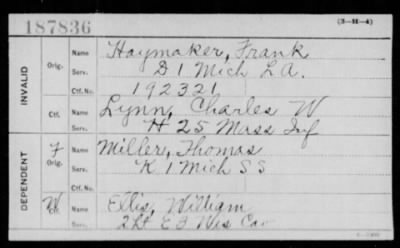 187836
(3-H-4)
INVALID
Orig.
Name Haymaker, Frank
Serv. D 1 Mich L A.
Ctf. No. 192321
Ctf.
Name Lynn, Charles W
Serv. H 25 Mass Inf
DEPENDENT
F
Orig.
Name Miller, Thomas
Serv. K 1 Mich S S
W
Ctf.
Name Ellis, William
Serv. 2 Lt E 3 Wis Cav